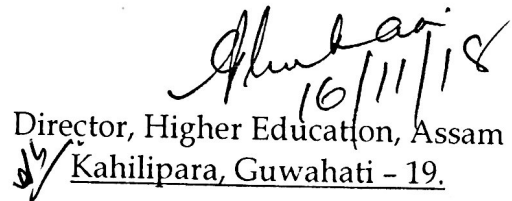 16/11/18
Director, Higher Education, Assam
Kahilipara, Guwahati – 19.